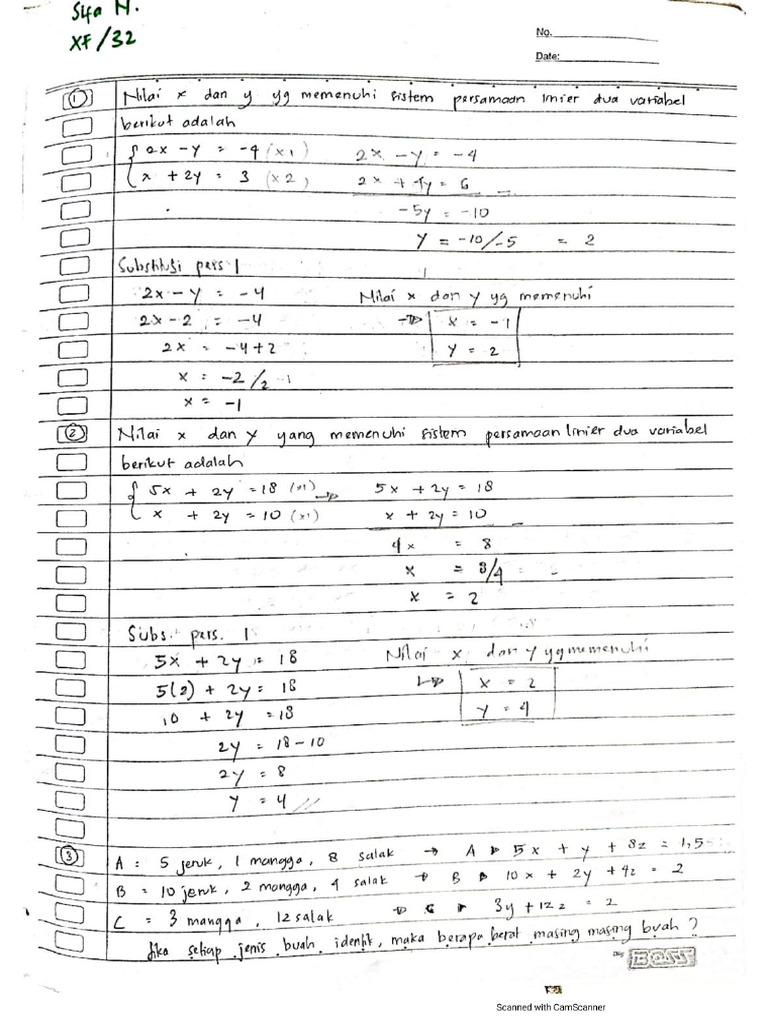 Sya N.
XF/32
No.
Date:
① Nilai x dan y yg memenuhi sistem persamaan linier dua variabel
berikut adalah
{ 2x - y = -4 (x1)    2x - y = -4
x + 2y = 3 (x2)    2x + 4y = 6 -
-5y = -10
y = -10/-5 = 2
Substitusi pers 1
2x - y = -4    Nilai x dan y yg memenuhi
2x - 2 = -4    → x = -1
2x = -4+2    y = 2
x = -2/2
x = -1
② Nilai x dan y yang memenuhi sistem persamaan linier dua variabel
berikut adalah
{ 5x + 2y = 18 (x1) →    5x + 2y = 18
x + 2y = 10 (x1)    x + 2y = 10 -
4x = 8
x = 8/4
x = 2
Subs. pers. 1
5x + 2y = 18    Nilai x dan y yg memenuhi
5(2) + 2y = 18    ↳ x = 2
10 + 2y = 18    y = 4
2y = 18 - 10
2y = 8
y = 4 //
③ A = 5 jeruk, 1 mangga, 8 salak → A ▸ 5x + y + 8z = 1,5
B = 10 jeruk, 2 mangga, 4 salak → B ▸ 10x + 2y + 4z = 2
C = 3 mangga, 12 salak → C ▸ 3y + 12z = 2
Jika setiap jenis buah identik, maka berapa berat masing masing buah?
BOSS
Scanned with CamScanner